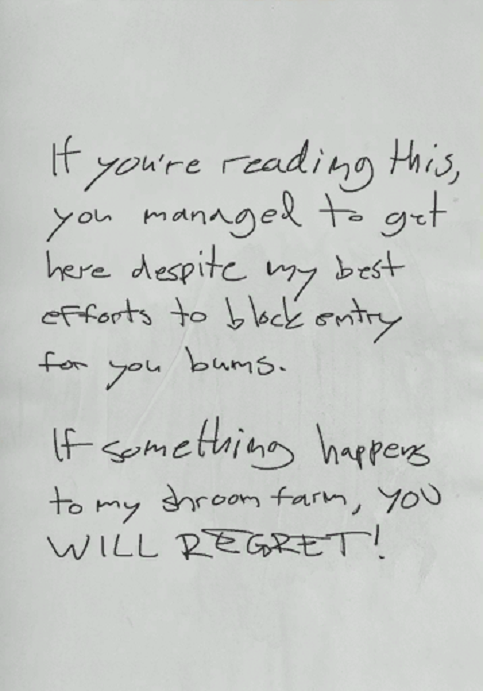 If you're reading this,
you managed to get
here despite my best
efforts to block entry
for you bums.
If something happens
to my shroom farm, YOU
WILL REGRET!